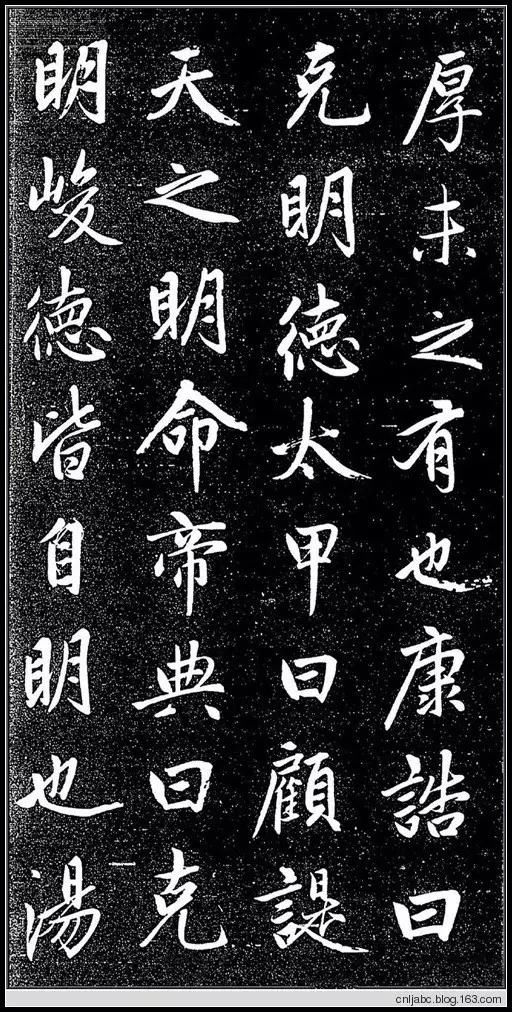 厚未之有也康誥曰
克明德太甲曰顧諟
天之明命帝典曰克
明峻德皆自明也湯
cnljabc.blog.163.com